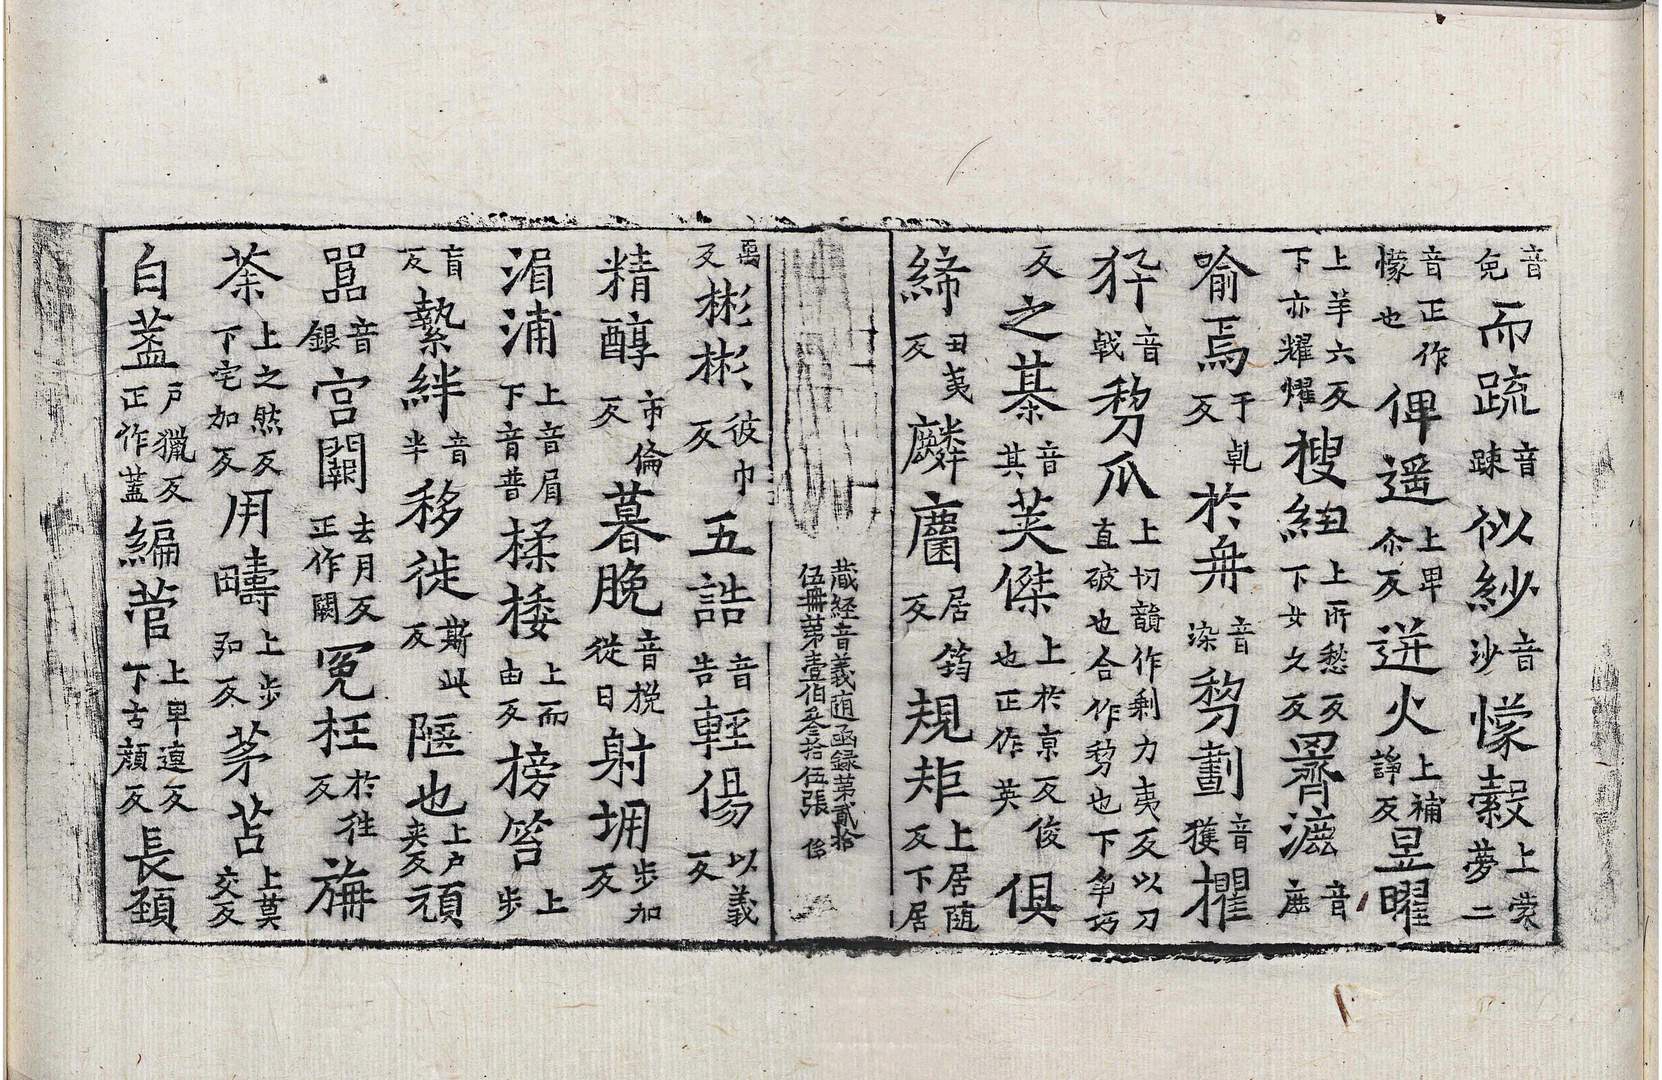 音免而疏音踈似紗音沙懞縠上蒙夢二
音正作懞也俾遥上卑尒反迸火上補諍反昱曜
上羊六反下亦耀燿搜紐上所愁反下女久反羅濨音鹿
喻焉于乹反於舟音染剺劃音獲攫
犴音戟剺爪上切韻作剩力夷反以刀直破也合作剺也下争巧
反之綦音其英傑上於京反俊也正作英俱
締田夷反麟麕居筠反規矩上居随反下居
藏経音義随函録第貳拾
伍冊苐壹伯叄拾伍張 俻
禹反彬彬彼巾反五誥音告輕傷以義反
精醇市倫反暮晚音挽從日射堋步加反
湄浦上音眉下音普揉捼上而由反搒笞上步
盲反縶絆音半移徙斯此反陿也上戶夾反頑
嚚音銀宮闕去月反正作闕冤枉於往反旃
荼上之然反下宅加反用疇上步田反茅苫上莫交反
白盖戶獵反正作蓋編菅上卑邉反下古顔反長頚